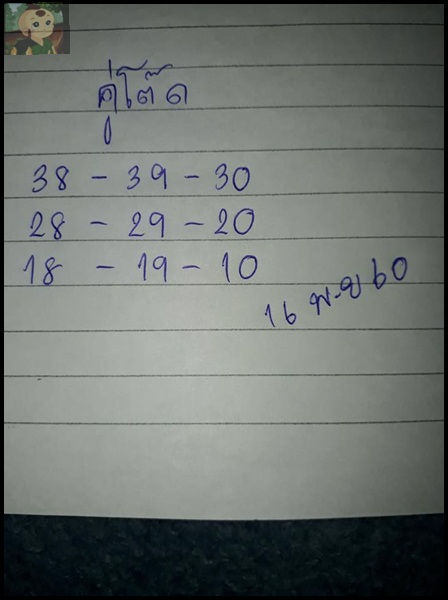 คู่โต๊ด
38 - 39 - 30
28 - 29 - 20
18 - 19 - 10
16 พ.ย 60